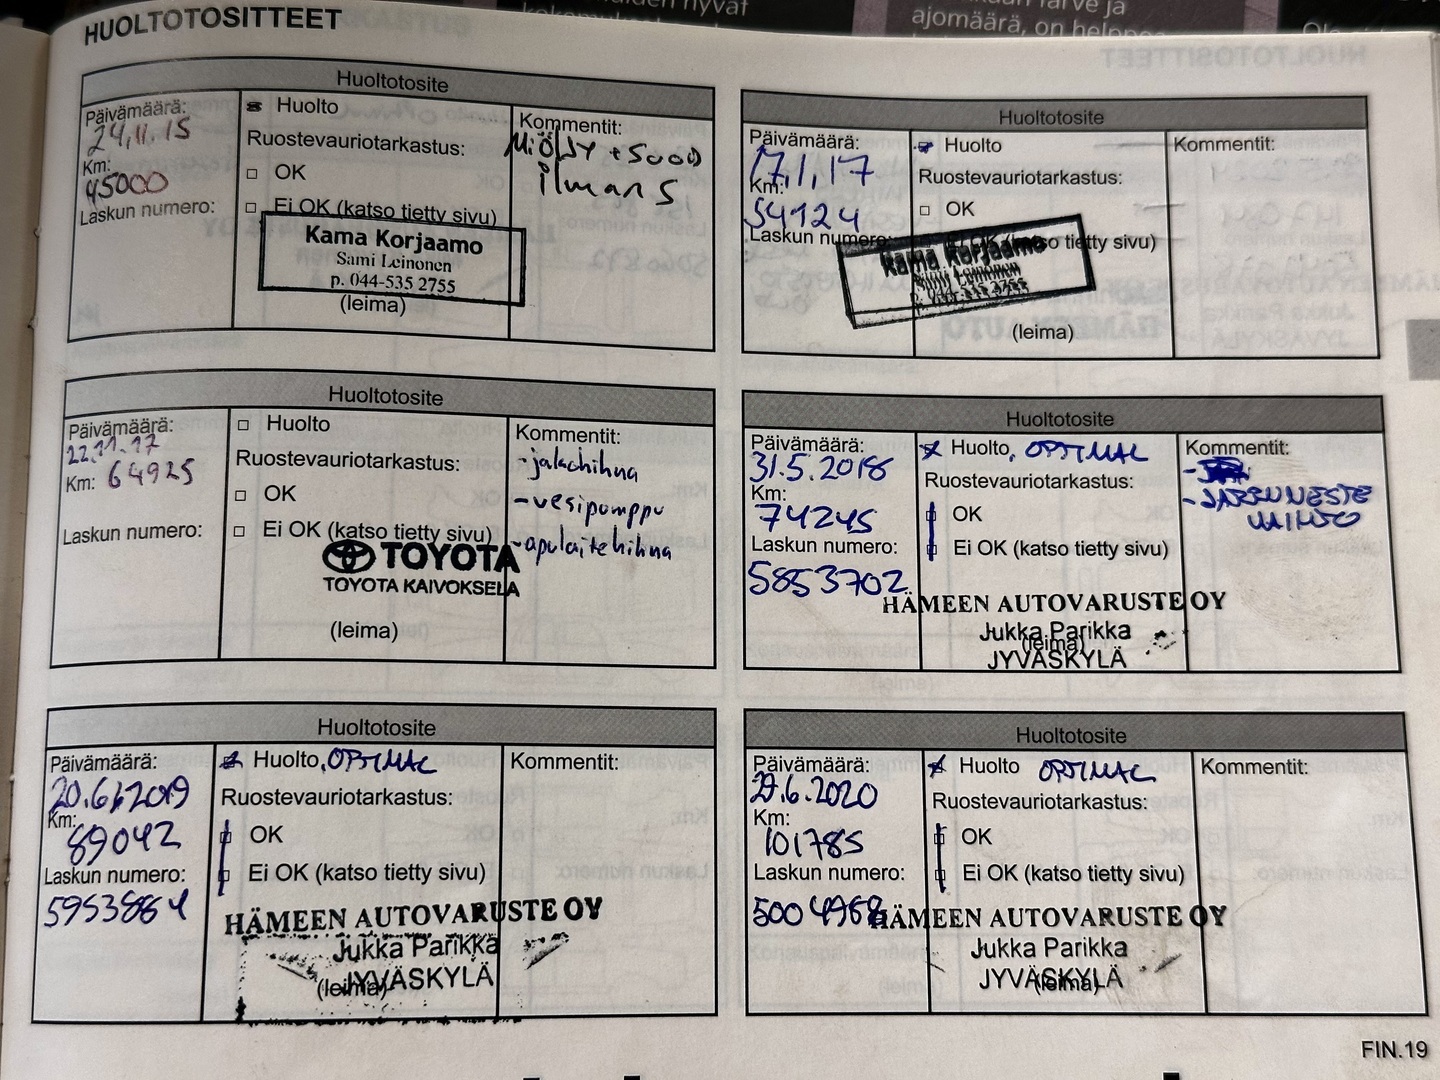 HUOLTOTOSITTEET
ajomäärä, on helppo
Huoltotosite
Päivämäärä:
24.11.15
Km:
45000
Laskun numero:
Huolto
Ruostevauriotarkastus:
OK
Ei OK (katso tietty sivu)
Kama Korjaamo
Sami Leinonen
p. 044-535 2755
(leima)
Kommentit:
MÖLJY + SUOD
ilman S
Huoltotosite
Päivämäärä:
17.1.17
Km:
54124
Laskun numero:
Huolto
Ruostevauriotarkastus:
OK
so tietty sivu)
Kama Korjaamo
(leima)
Kommentit:
Huoltotosite
Päivämäärä:
22.11.17
Km: 64925
Laskun numero:
Huolto
Ruostevauriotarkastus:
OK
Ei OK (katso tietty sivu)
TOYOTA
TOYOTA KAIVOKSELA
(leima)
Kommentit:
-jakohihna
-vesipumppu
-apulaitehihna
Huoltotosite
Päivämäärä:
31.5.2018
Km:
74245
Laskun numero:
5853702
Huolto, OPTIMAL
Ruostevauriotarkastus:
OK
Ei OK (katso tietty sivu)
HÄMEEN AUTOVARUSTE OY
Jukka Parikka
(leima)
JYVÄSKYLÄ
Kommentit:
- JARRUNESTE
VAIHTO
Huoltotosite
Päivämäärä:
20.6.2019
Km:
89042
Laskun numero:
5953884
Huolto, OPTIMAL
Ruostevauriotarkastus:
OK
Ei OK (katso tietty sivu)
HÄMEEN AUTOVARUSTE OY
Jukka Parikka
JYVÄSKYLÄ
(leima)
Kommentit:
Huoltotosite
Päivämäärä:
29.6.2020
Km:
101785
Laskun numero:
5004968
Huolto OPTIMAL
Ruostevauriotarkastus:
OK
Ei OK (katso tietty sivu)
HÄMEEN AUTOVARUSTE OY
Jukka Parikka
JYVÄSKYLÄ
(leima)
Kommentit:
FIN.19